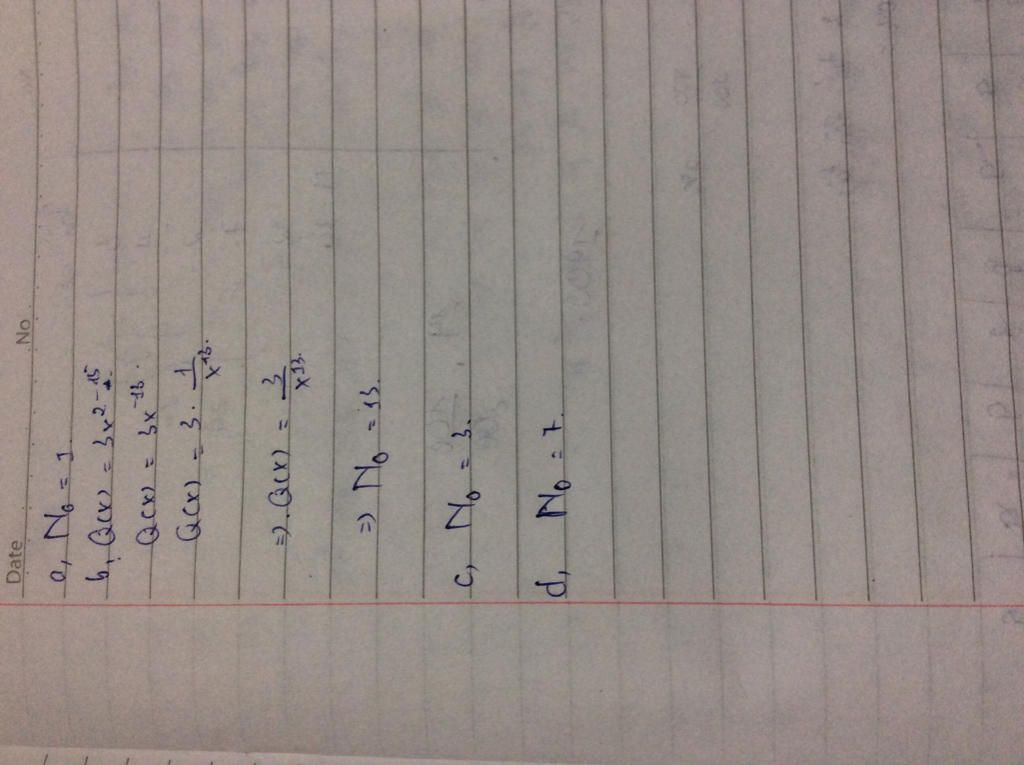 Date No
a, N₀ = 1
b, Q(x) = 3x²⁻¹⁵
Q(x) = 3x⁻¹³.
Q(x) = 3 . 1/x¹³.
=> Q(x) = 3/x¹³.
=> N₀ = 13.
c, N₀ = 3.
d, N₀ = 7.